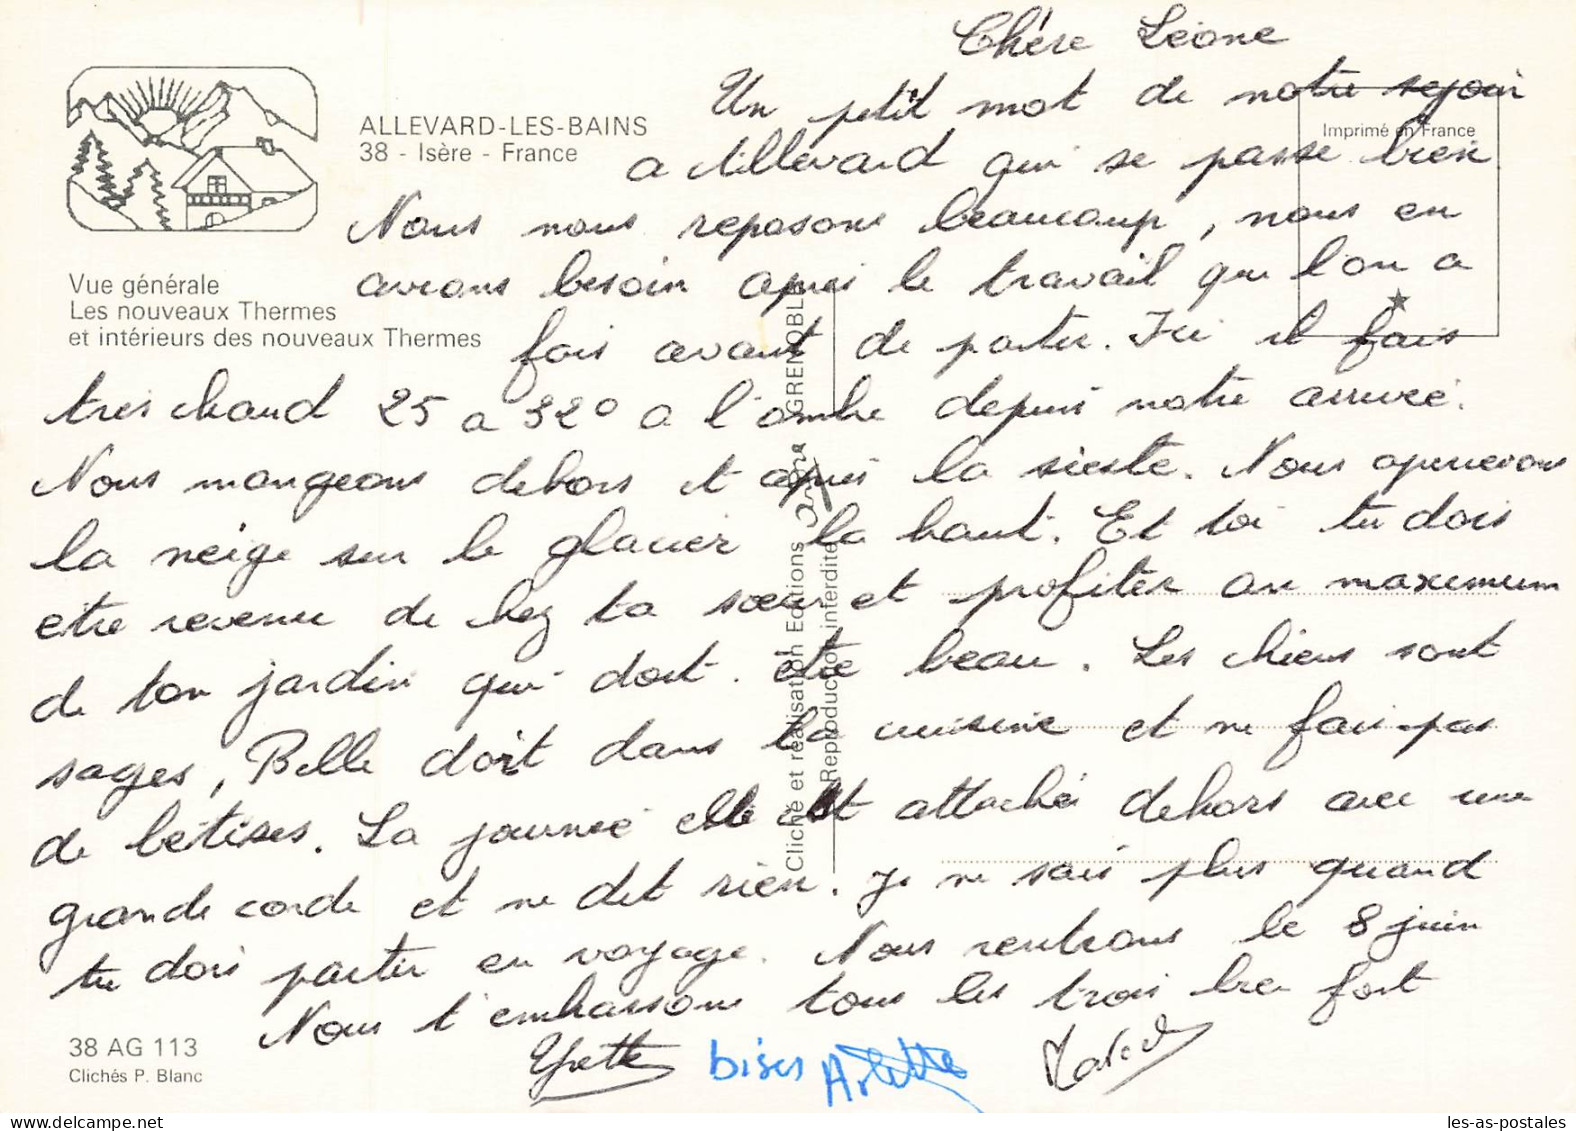 Chère Léone
Un petit mot de notre sejour
a Allevard qui se passe bien
Nous nous reposons beaucoup, nous en
avions besoin apres le travail que l'on a
fais avant de partir. Ici il fais
tres chaud 25 a 32° a l'ombre depuis notre arrivée.
Nous mangeons dehors et après la sieste. Nous apercevons
la neige sur le glacier la haut. Et toi tu dois
etre revenue de chez ta sœur et profiter au maximum
de ton jardin qui doit être beau. Les chiens sont
sages, Belle dort dans la cuisine et ne fais pas
de bêtises. La journée elle est attachée dehors avec une
grande corde et ne dit rien. Je ne sais plus quand
tu dois partir en voyage. Nous rentrons le 8 juin
Nous t'embrassons tous les trois bien fort
Yvette bises Arlette
ALLEVARD-LES-BAINS
38 - Isère - France
Vue générale
Les nouveaux Thermes
et intérieurs des nouveaux Thermes
Imprimé en France
Cliché et réalisation Editions GRENOBLE
Reproduction interdite
38 AG 113
Clichés P. Blanc
les-as-postales